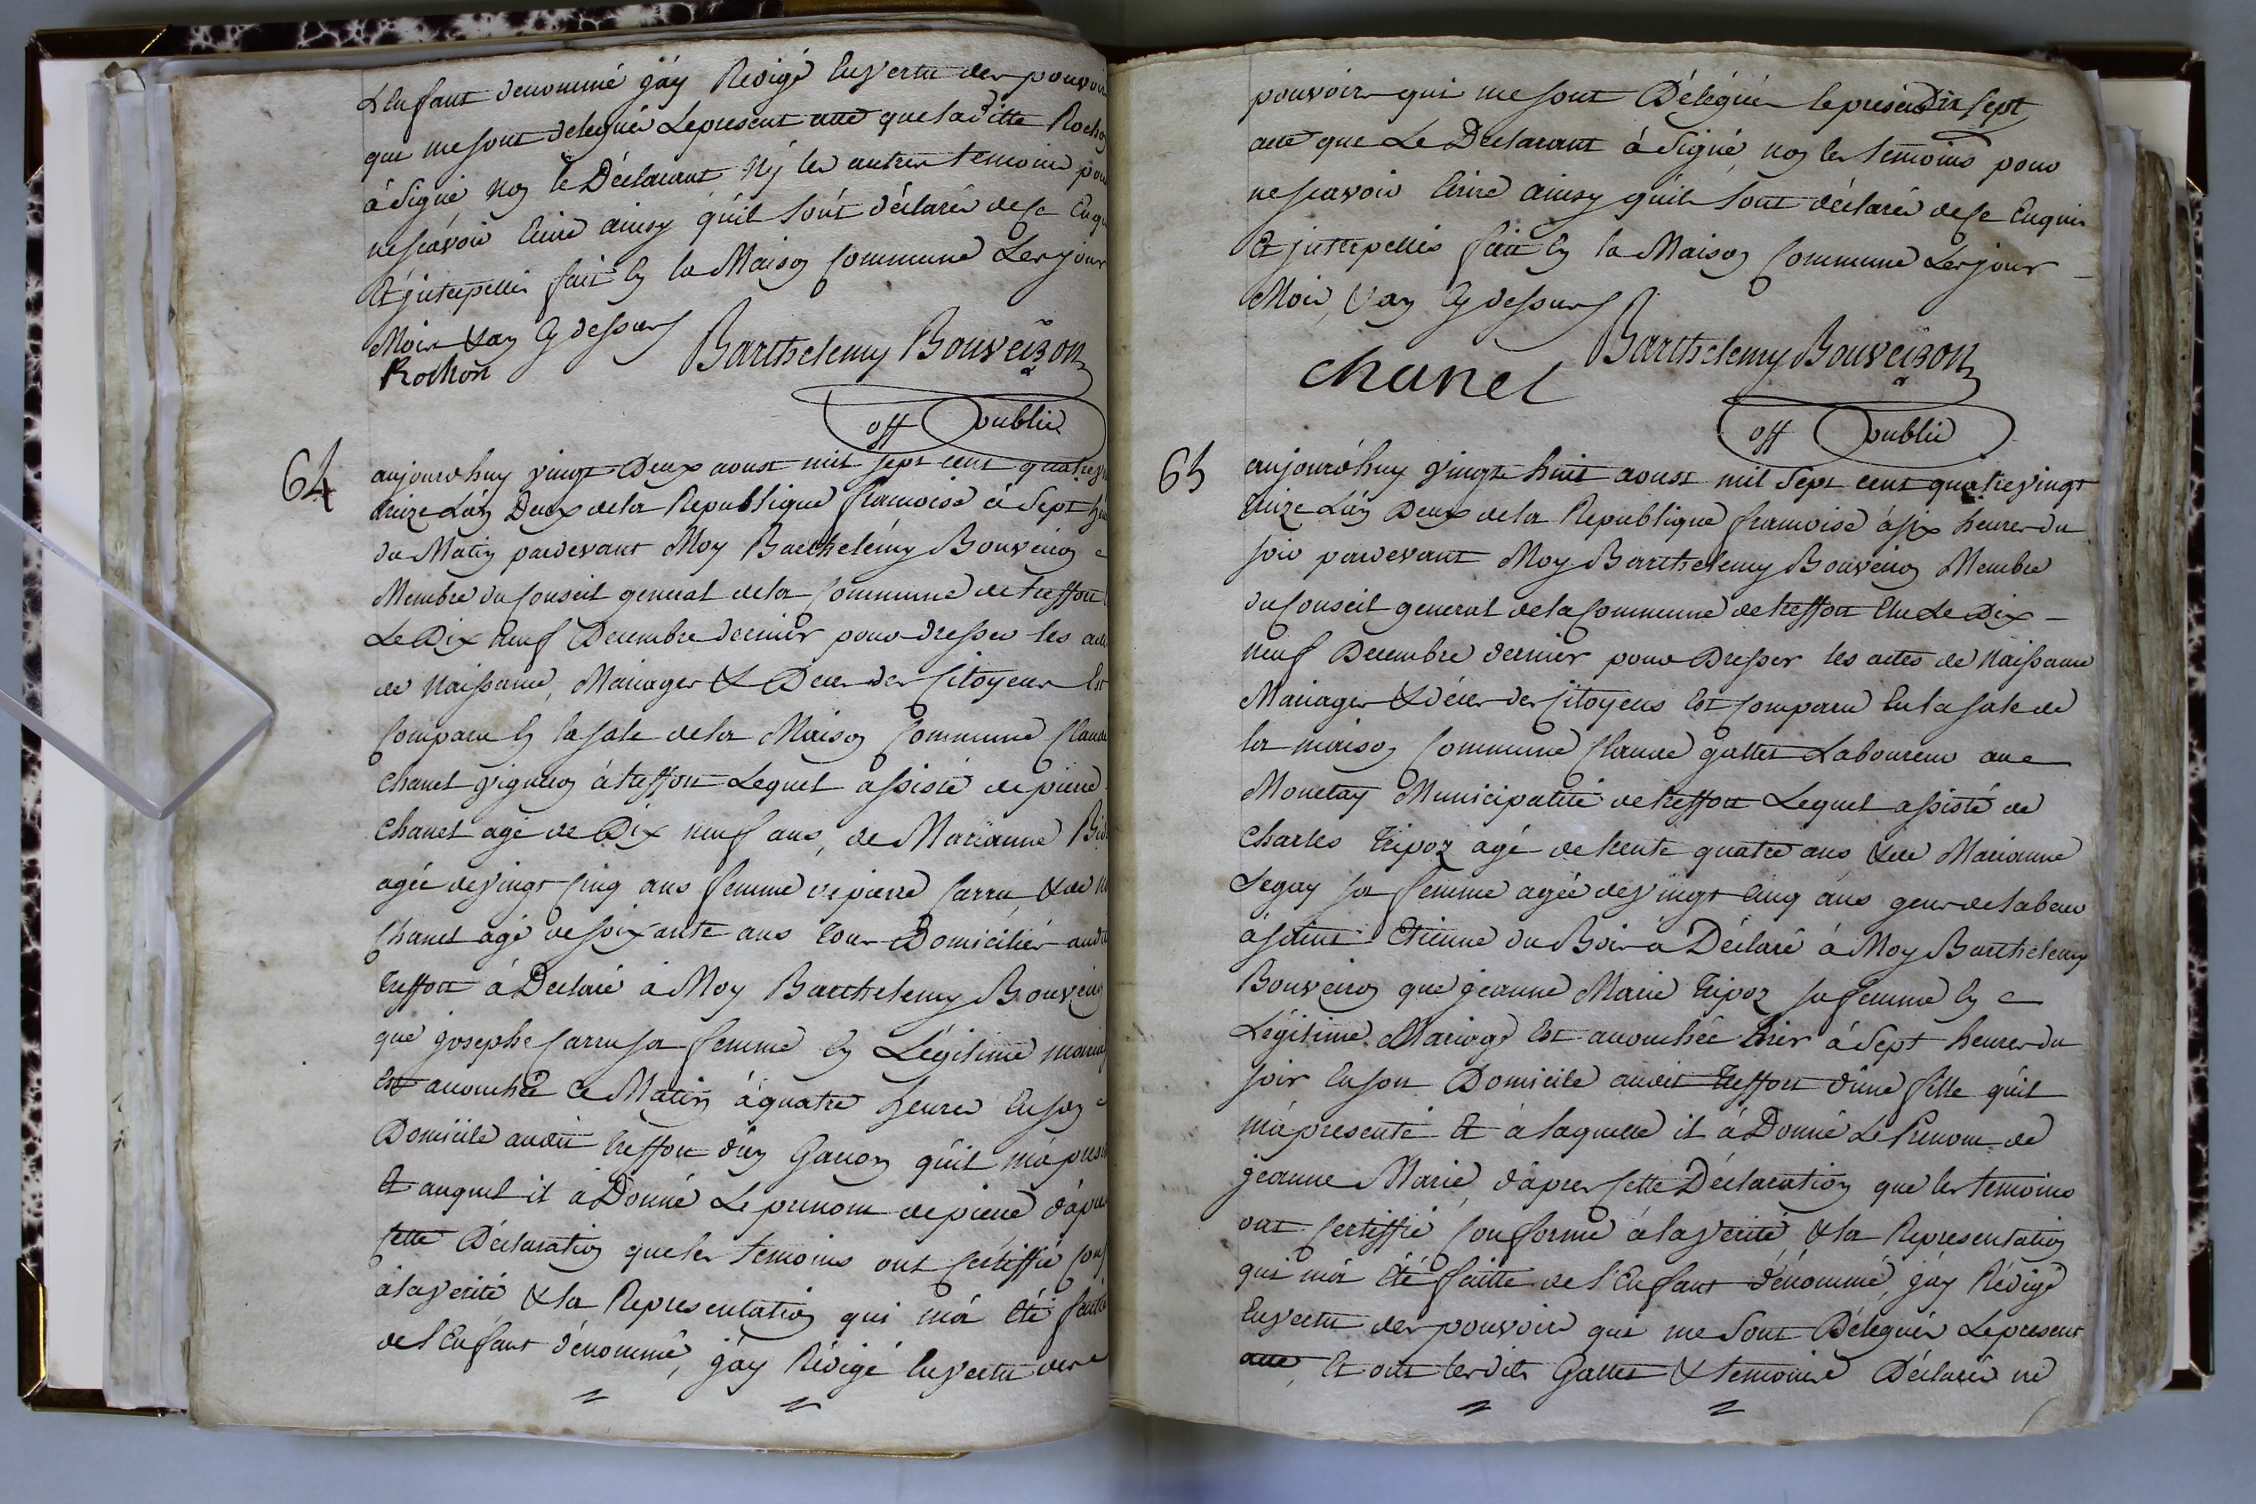 L'Enfant denommé j'áy Rédigé En vertu des pouvoir
qui me sont délégués Le present acte que laditte Rochon
à Signé non le Déclarant Nÿ les autres temoins pour
ne sçavoir Ecrire ainsy qu'il sont déclarés de ce Enquis
Et jnterpellés fait En la Maison Commune Les jour
Mois & an Cy dessus
Rochon Barthelemy Bouveiron
off public
64
aujourdhuy vingt Deux aoust mil sept cent quatre v
treize L'án Deux de la Republique francoise à Sept he
du Matin pardevant Moy Barthelémy Bouveiron
Membre du Conseil general de la Commune de treffort
Le Dix neuf Decembre dernier pour dresser les acte
de Naissance, Mariages & Deces des Citoyens Est
Comparu En la sale de la Maison Commune Claude
Chanel vigneron à treffort Lequel assisté de pierre
Chanel agé de Dix neuf ans, de Marianne
agée de vingt Cinq ans femme de pierre Carru, & de
Chanel agé de soixante ans tous Domiciliés audit
treffort à Declaré à Moy Barthelemy Bouveiron
que josephe Carru sa femme En Légitime mariage
Est accouchée Ce Matin à quatre heures En son
Domicile audit treffort d'ún Garcon qu'il m'à present
Et auquel il à Donné Le prenom de pierre d'ápres
Cette Déclaration que les temoins ont Certiffié Conf
à la verité & la Representation qui m'à Eté faitte
de l'Enfant dénommé, j'áy Rédigé En vertu des
pouvoir qui me sont Délégués le present Dix sept
acte que Le Declarant à Signé non les temoins pour
ne sçavoir Ecrire ainsy qu'ils sont déclarés de ce Enquis
Et jnterpellés fait En la Maison Commune Les jour
Mois, & an Cy dessus
Barthelemy Bouveiron
chanel
off public
65
aujourdhuy vingt huit aoust mil Sept cent quatre vingt
treize L'án Deux de la Republique francoise à six heures du
soir pardevant Moy Barthelemy Bouveiron Membre
du Conseil general de la Commune de treffort Elu Le Dix
neuf Decembre dernier pour Dresser les actes de Naissance
Mariages & déces des Citoyens Est Comparu En la sale de
la maison Commune Claude gallet Laboureur au
Monetay Municipalité de treffort Lequel assisté de
Charles tripoz agé de trente quatre ans & de Marianne
Segay sa femme agée de vingt Cinq áns gens de labeur
à saint Etienne du Bois à Déclaré à Moy Barthelemy
Bouveiron que jeanne Marie tripoz sa femme En
Légitime Mariage Est accouchée hier à Sept heures du
soir En son Domicile audit treffort d'úne fille qu'il
m'à presenté Et à laquelle il à Donné Le Prenom de
jeanne Marie, d'ápres Cette Déclaration que les temoins
ont Certiffié Conforme à la verité & la Representation
qui m'à Eté faitte de l'Enfant dénommé, j'áy Rédigé
En vertu des pouvoir qui me Sont Délégués Le present
acte, Et ont lesdits Gallet & temoins Déclarés ne